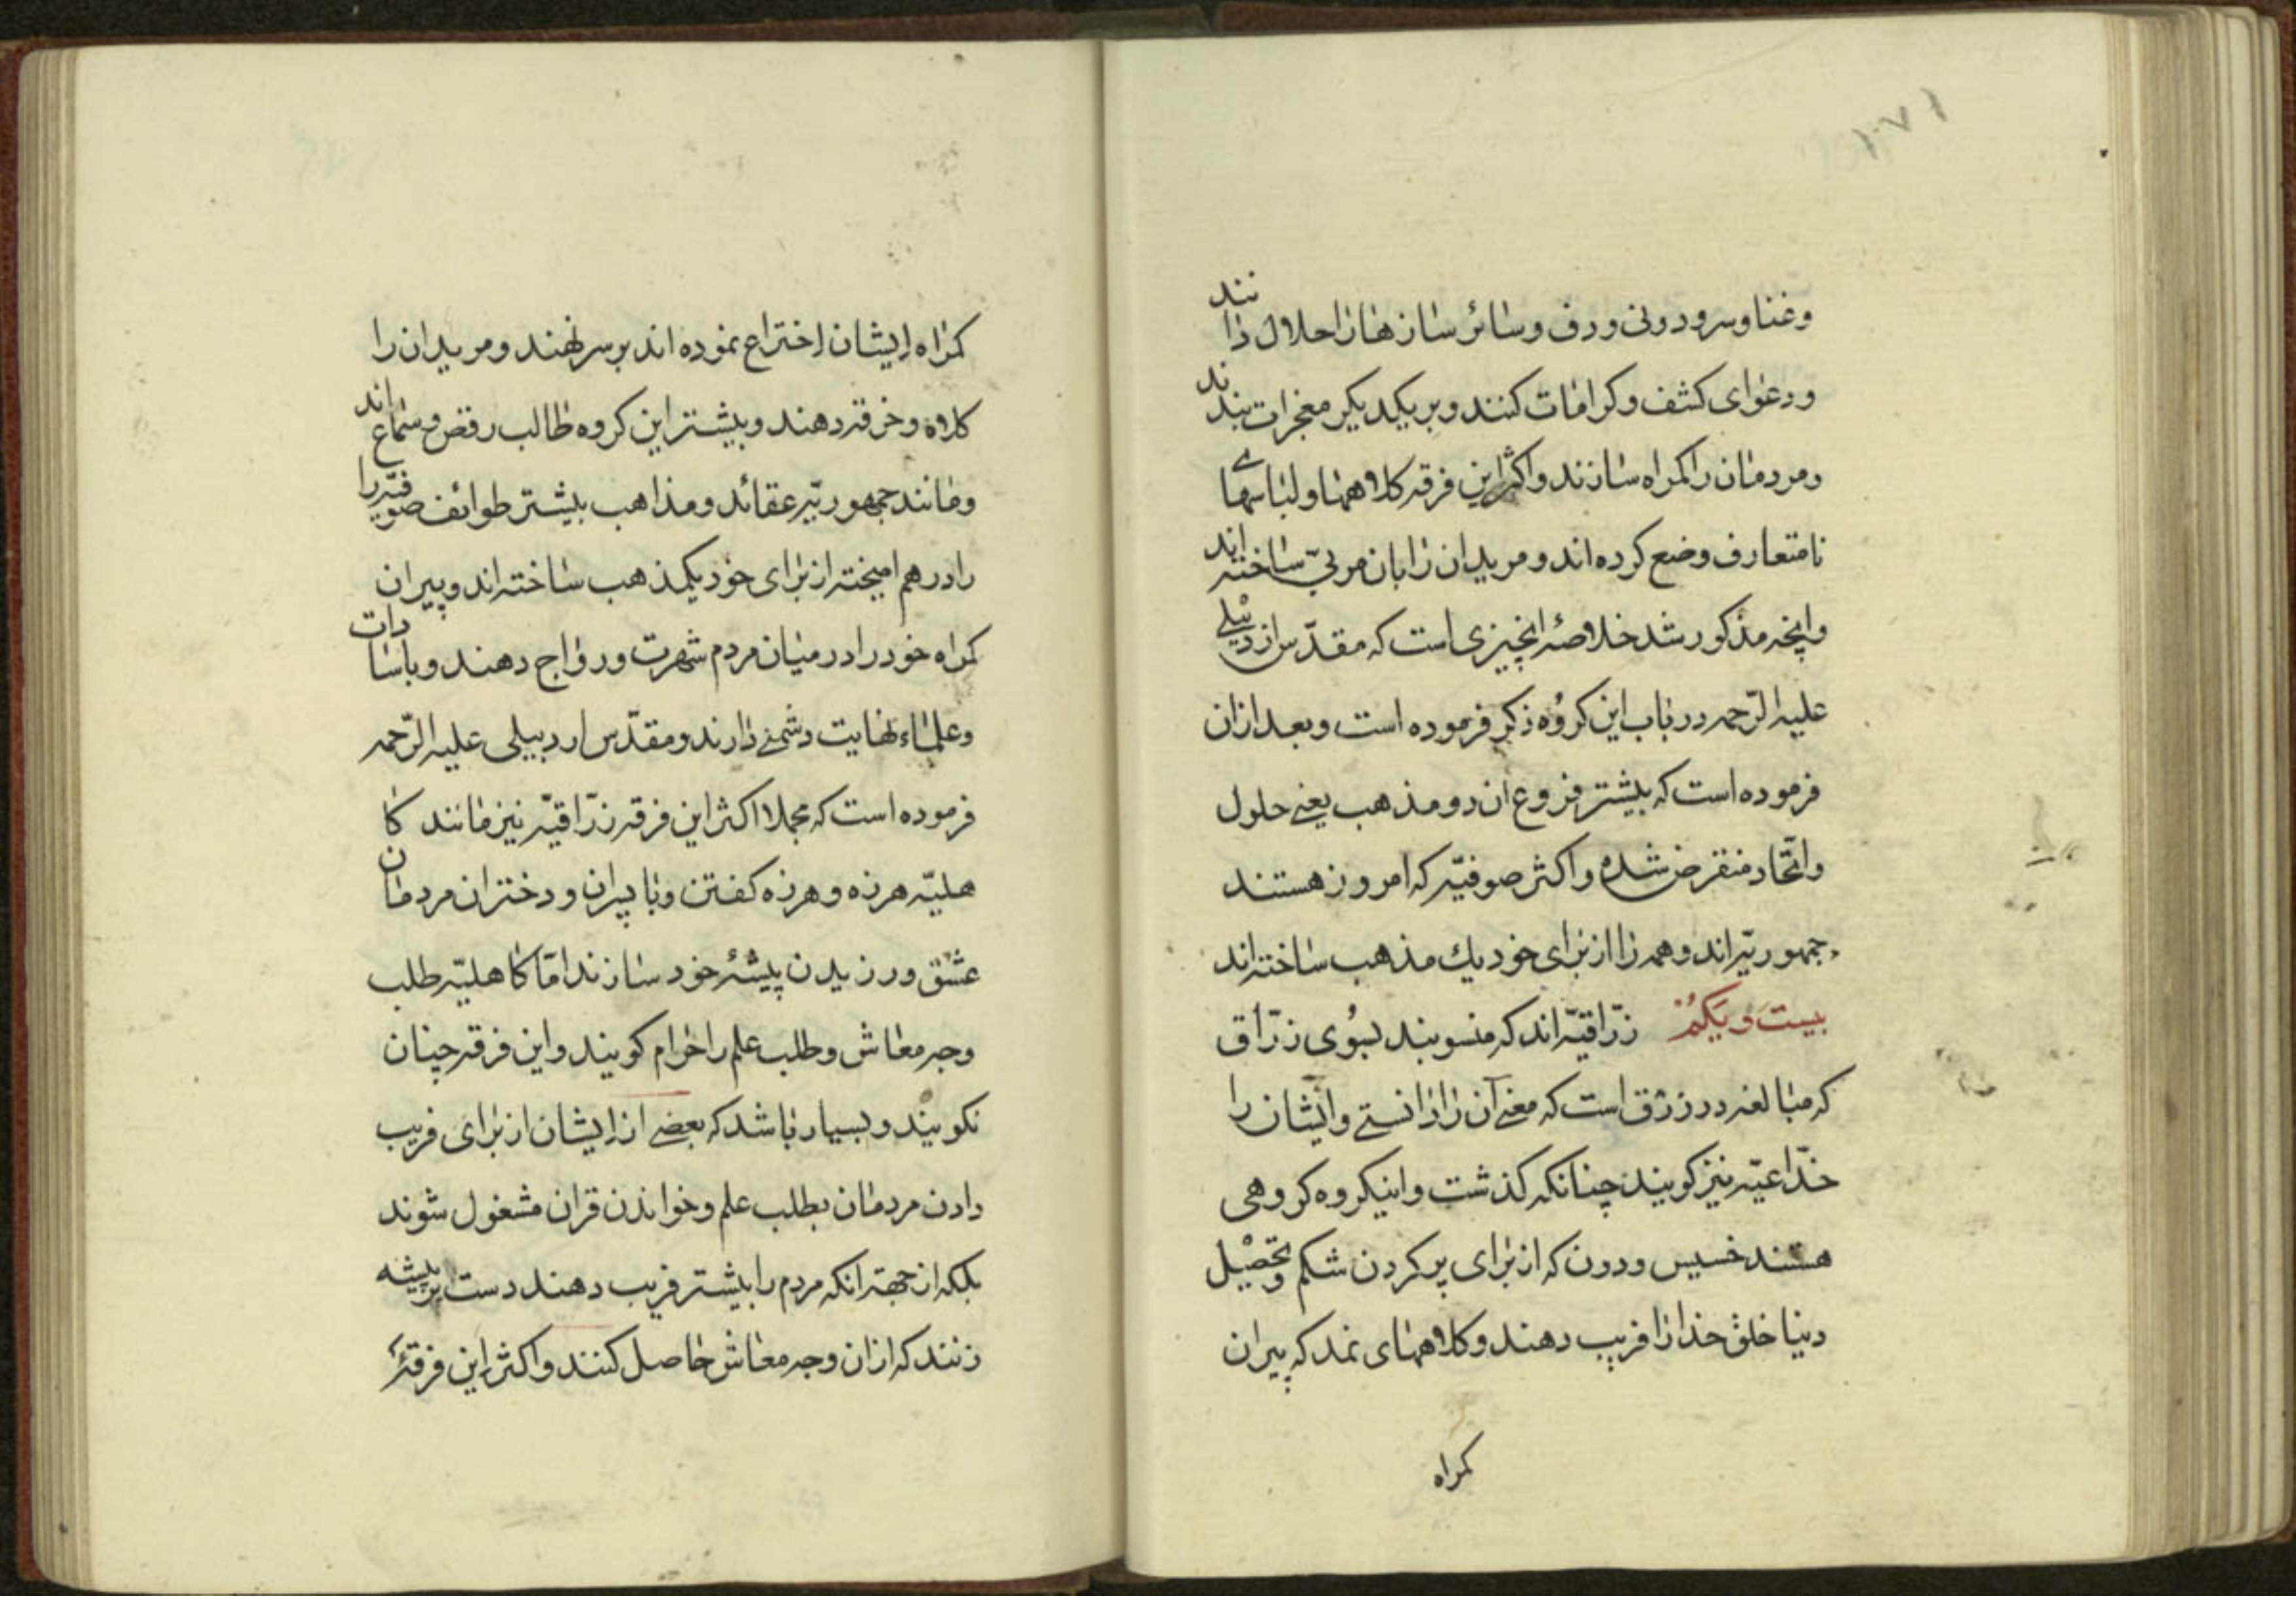 ۱۰۷۱
وغنا وسرود ونی ودف وسائر سازهارا حلال دانند
ودعوای کشف وکرامات کنند وبر یکدیکر معجزات بندند
ومردمان را کمراه سازند واکثر این فرقه کلاههها ولباسهاے
نامتعارف وضع کرده اند ومریدان را بان مربی ساخته اند
وانچه مذکور شد خلاصهٔ انچیزی است که مقدّس اردبیلے
علیه الرّحمه در باب این کروه ذکر فرموده است وبعد ازان
فرموده است که بیشتر فروع ان دو مذهب یعنے حلول
واتّحاد منقرض شده واکثر صوفیّه که امروز هستند
جمهوریّه اند وهمه را از برای خود یك مذهب ساخته اند
بیست و یکم زرّاقیّه اند که منسوبند بسوی زرّاق
که مبالغه در زرق است که معنے آن را دانستے وایشان را
خدّاعیّه نیز کویند چنانکه کذشت واینکروه کروهی
هستند خسیس ودون که از برای پر کردن شکم وتحصیل
دنیا خلق خدا را فریب دهند وکلاههای نمد که پیران
کمراه
کمراه ایشان اختراع نموده اند بر سر نهند ومریدان را
کلاه وخرقه دهند وبیشتر این کروه طالب رقص وسماع اند
ومانند جمهوریّه عقائد ومذاهب بیشتر طوائف صوفیّه را
را در هم امیخته از برای خود یکمذهب ساخته اند وپیران
کمراه خود را در میان مردم شهرت ورواج دهند وباسادات
وعلماء نهایت دشمنے دارند ومقدّس اردبیلی علیه الرّحمه
فرموده است که مجملا اکثر این فرقه زرّاقیّه نیز مانند کا
هلیّه هرزه وهرزه کفتن وبا پسران ودختران مردمان
عشق ورزیدن پیشهٔ خود سازند امّا کاهلیّه طلب
وجه معاش وطلب علم را حرام کویند واین فرقه چنان
نکویند وبسیار باشد که بعضے از ایشان از برای فریب
دادن مردمان بطلب علم وخواندن قران مشغول شوند
بلکه از جهة انکه مردم را بیشتر فریب دهند دست بر پیشه
زنند که ازان وجه معاش حاصل کنند واکثر این فرقهٔ